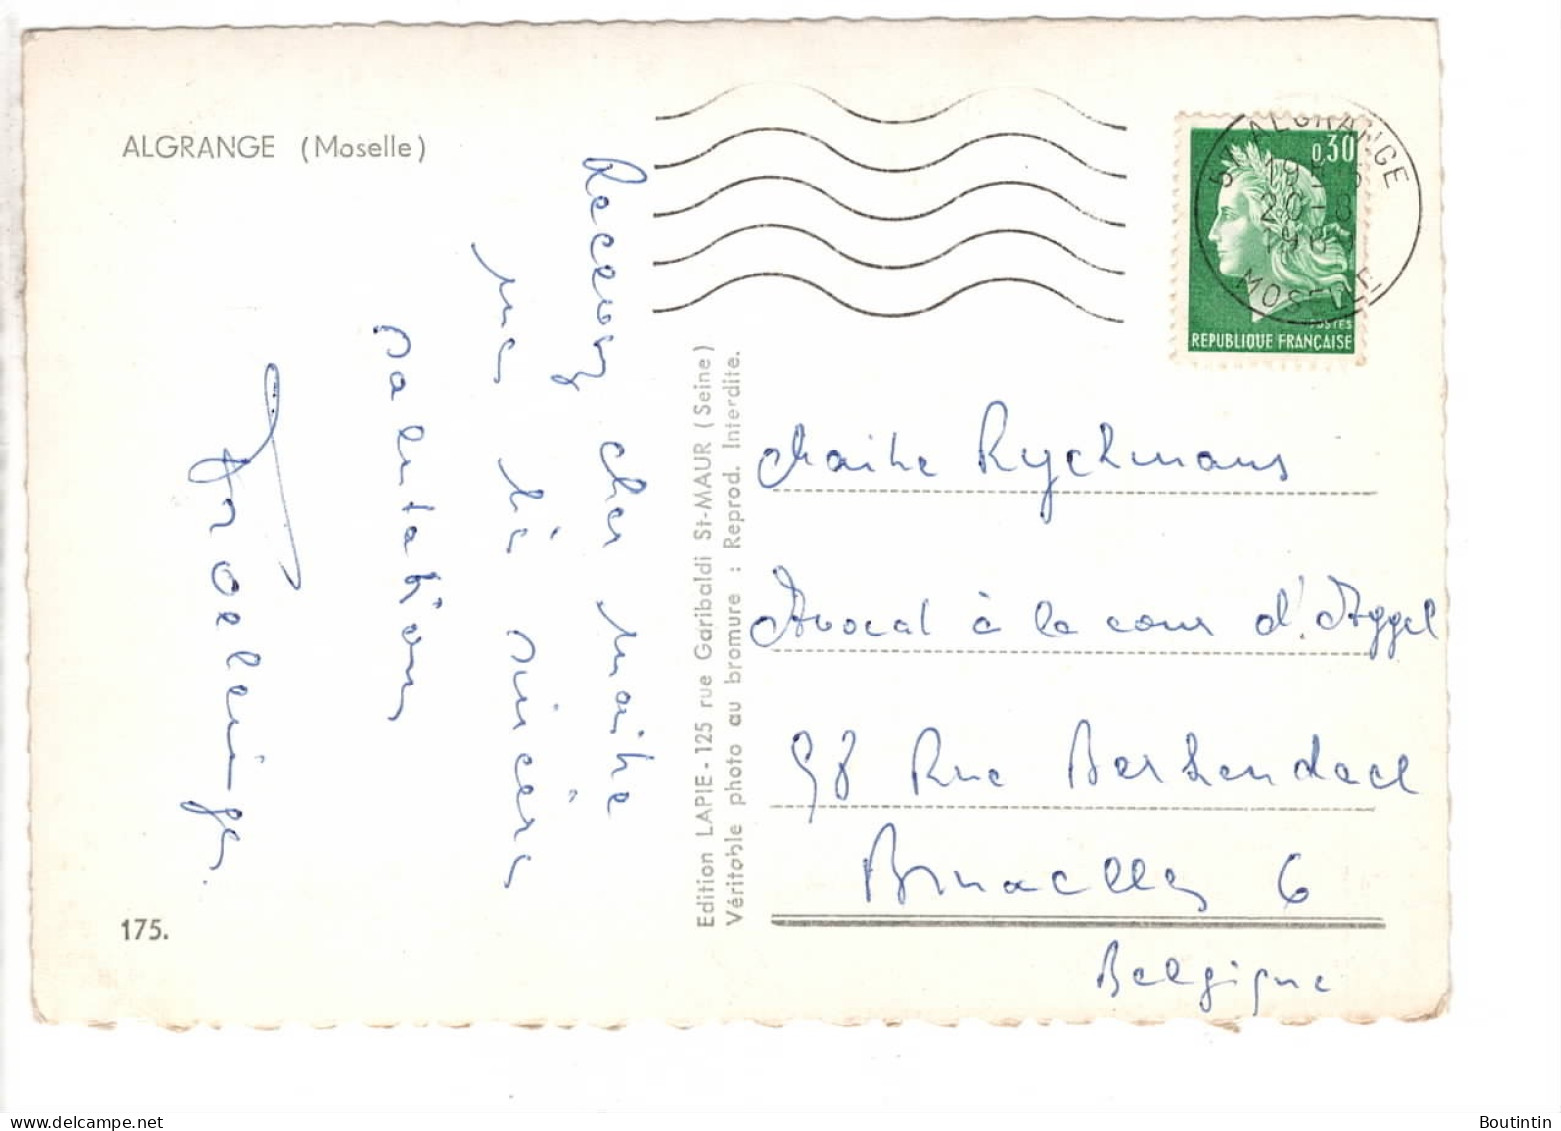 ALGRANGE (Moselle)
Recevez cher maitre
mes très sincères
salutations
175.
Edition LAPIE - 125 rue Garibaldi St-MAUR (Seine)
Véritable photo au bromure : Reprod. Interdite.
57 ALGRANGE
20-8
MOSELLE
0,30
POSTES
REPUBLIQUE FRANÇAISE
Maitre Ryckmans
Avocat à la cour d'Appel
98 Rue Berkendael
Bruxelles 6
Belgique
delcampe.net
Boutintin